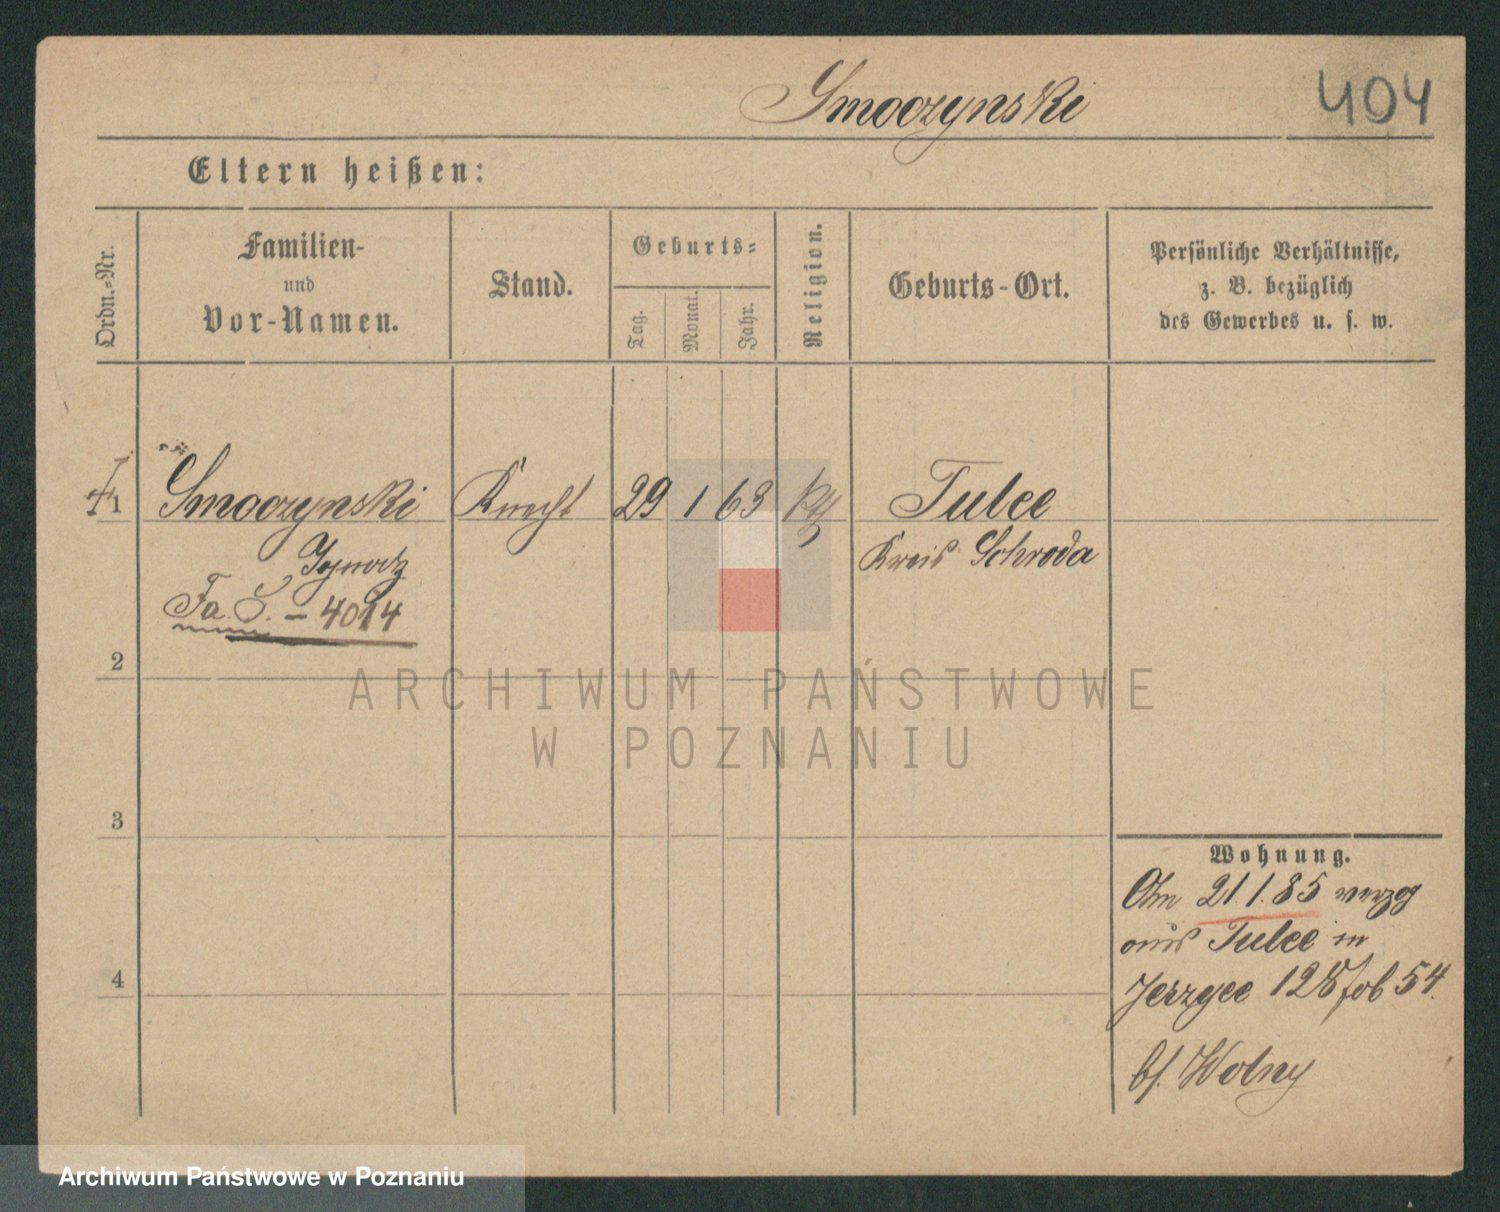 Smoczynski
404
Eltern heißen:
Ordn.-Nr.
Familien-
und
Vor-Namen.
Stand.
Geburts-
Tag.
Monat.
Jahr.
Religion.
Geburts-Ort.
Persönliche Verhältnisse,
z. B. bezüglich
des Gewerbes u. s. w.
1 Smoczynski Knecht 29 1 63 kth Tulce
Ignatz Kreis Schroda
Fa. S. - 4014
2
3
4
Wohnung.
Am 21.1.85 verzog
aus Tulce in
Jerzyce 128 54.
bf. Wolny
ARCHIWUM PAŃSTWOWE
W POZNANIU
Archiwum Państwowe w Poznaniu